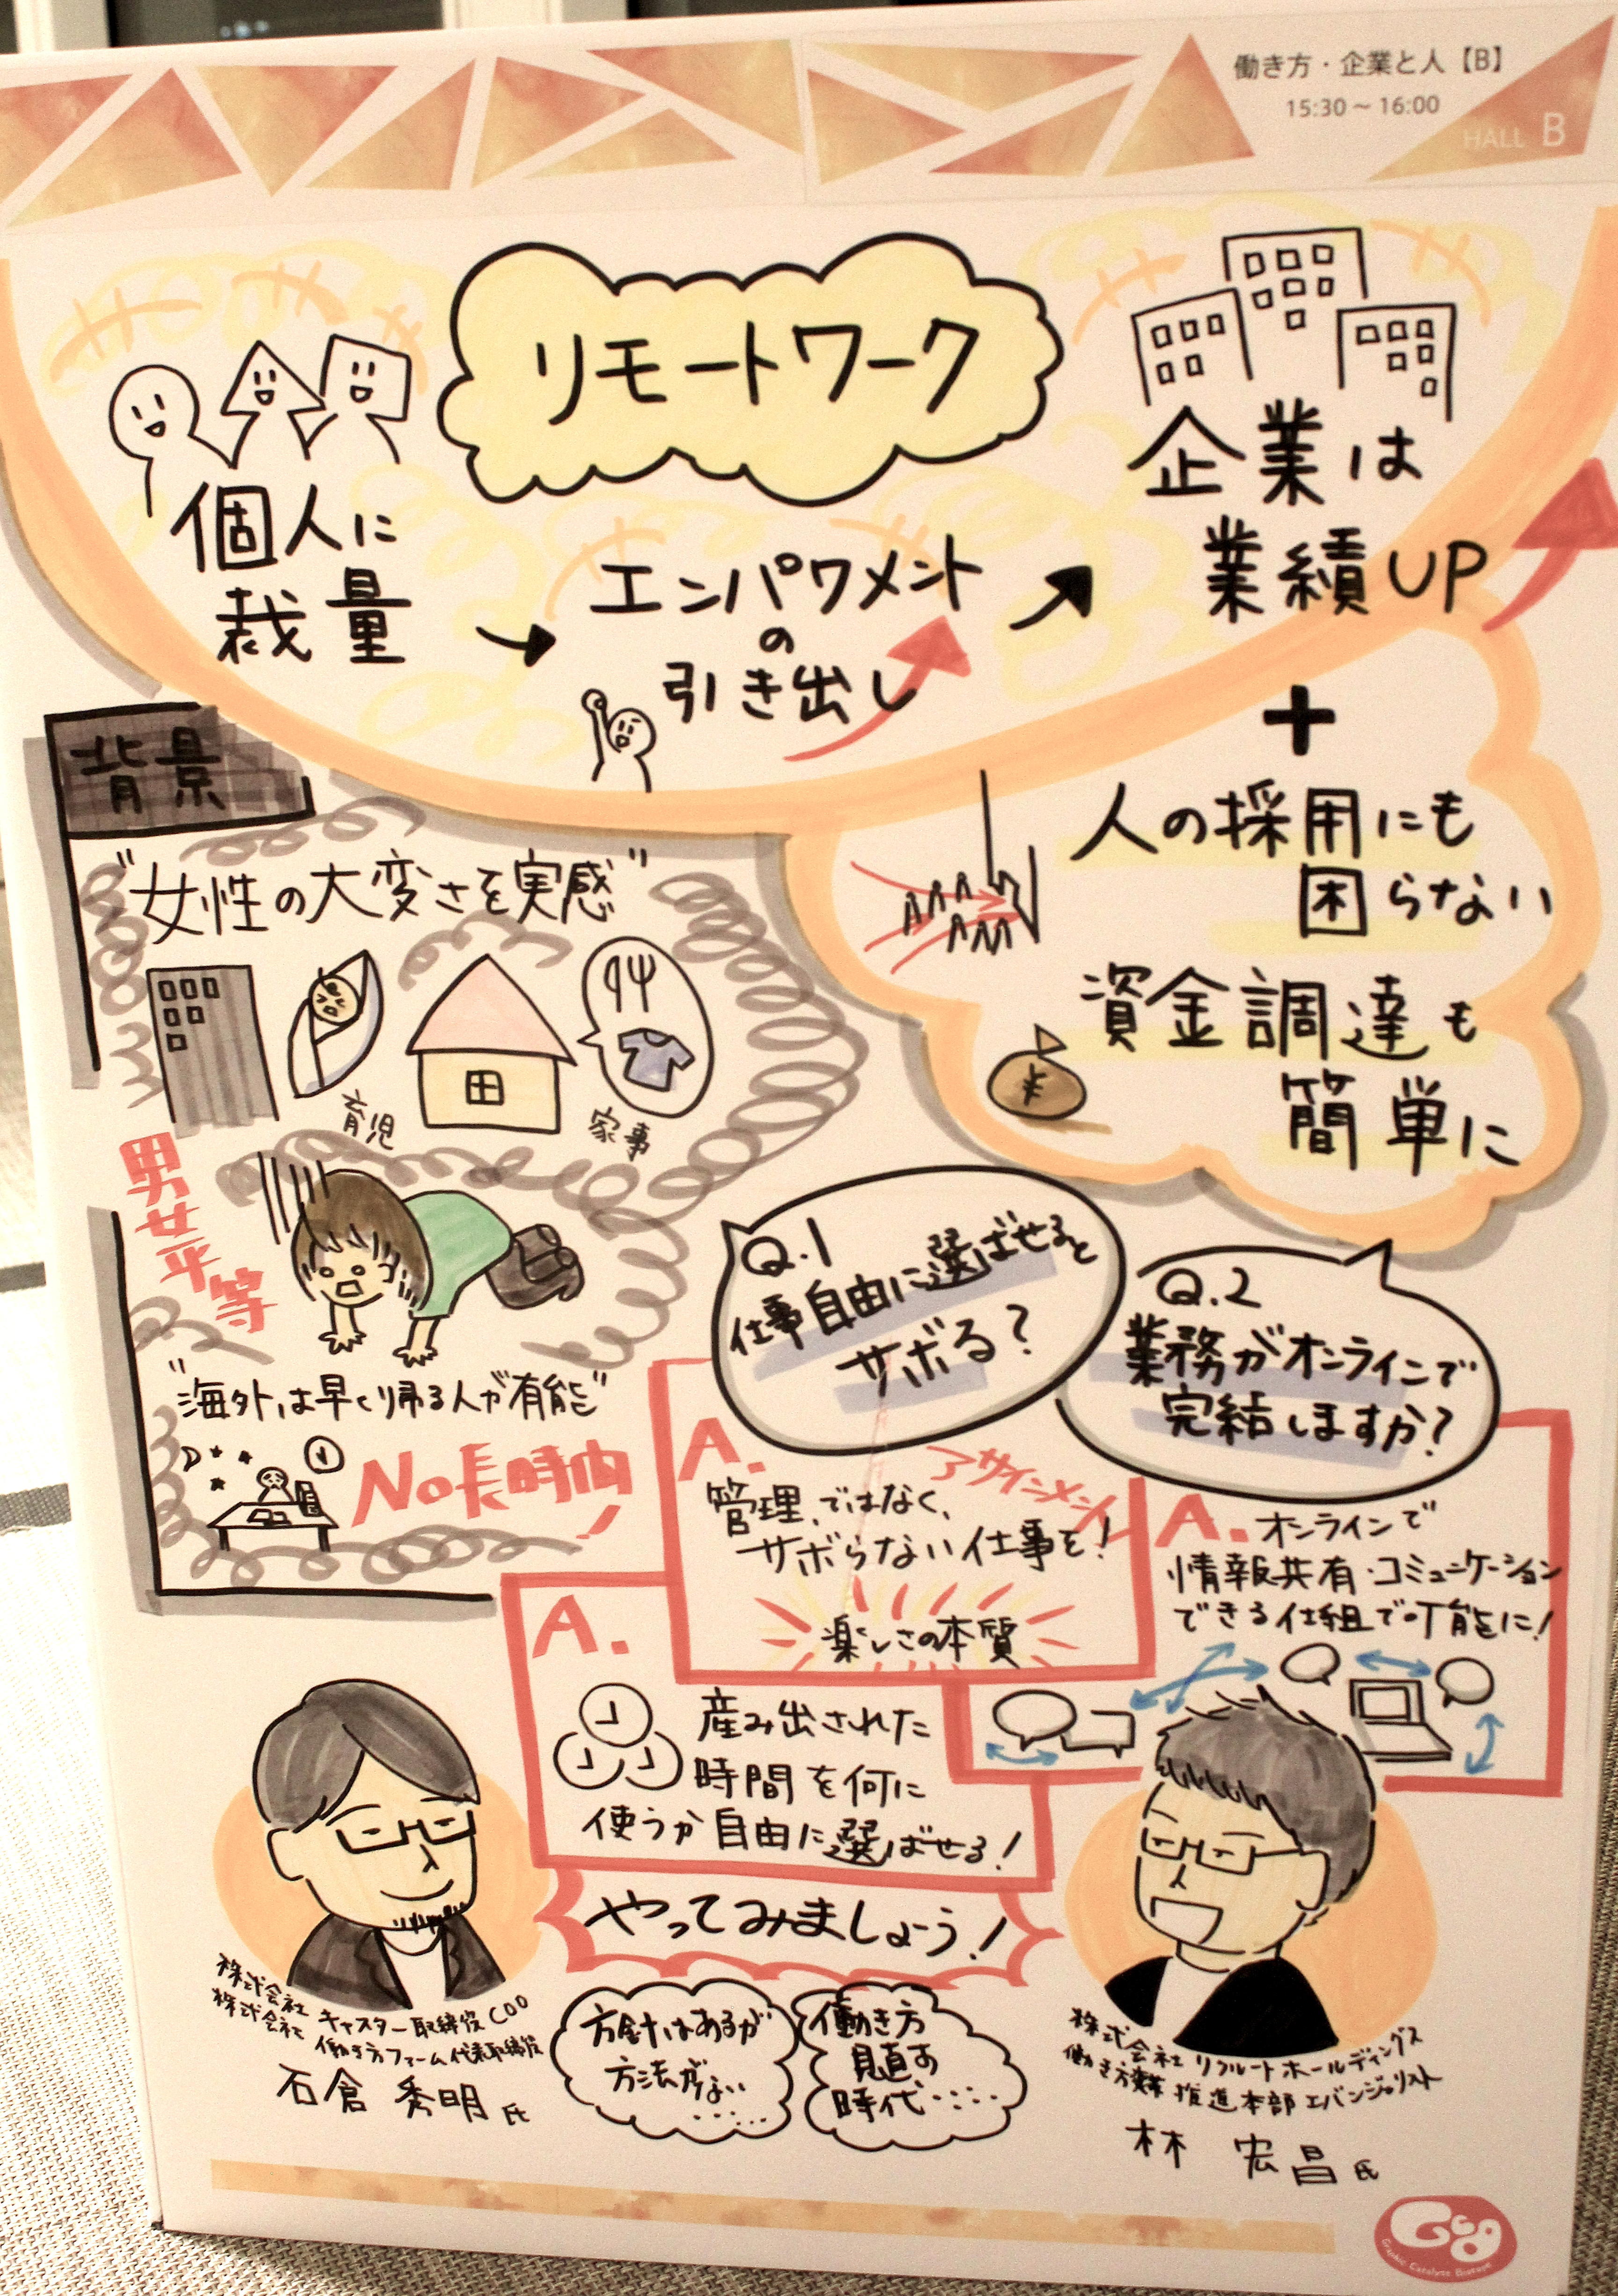 働き方・企業と人【B】
15:30 ~ 16:00
HALL B
リモートワーク
個人に
裁量
エンパワメント
の
引き出し
企業は
業績UP
+
人の採用にも
困らない
資金調達も
簡単に
¥
背景
"女性の大変さを実感"
育児
家事
男女平等
"海外は早く帰る人が有能"
No長時間
Q.1
仕事自由に選ばせると
サボる?
Q.2
業務がオンラインで
完結しますか?
A.
アサインメント
管理ではなく、
サボらない仕事を!
楽しさの本質
A.オンラインで
情報共有・コミュニケーション
できる仕組で可能に!
A.
産み出された
時間を何に
使うか自由に選ばせる!
やってみましょう!
株式会社キャスター取締役COO
株式会社働き方ファーム代表取締役
石倉 秀明 氏
方針はあるが
方法がない
......
働き方
見直す
時代....
株式会社リクルートホールディングス
働き方変革推進本部エバンジェリスト
林 宏昌 氏
GCB
Graphic Catalyst Biotope